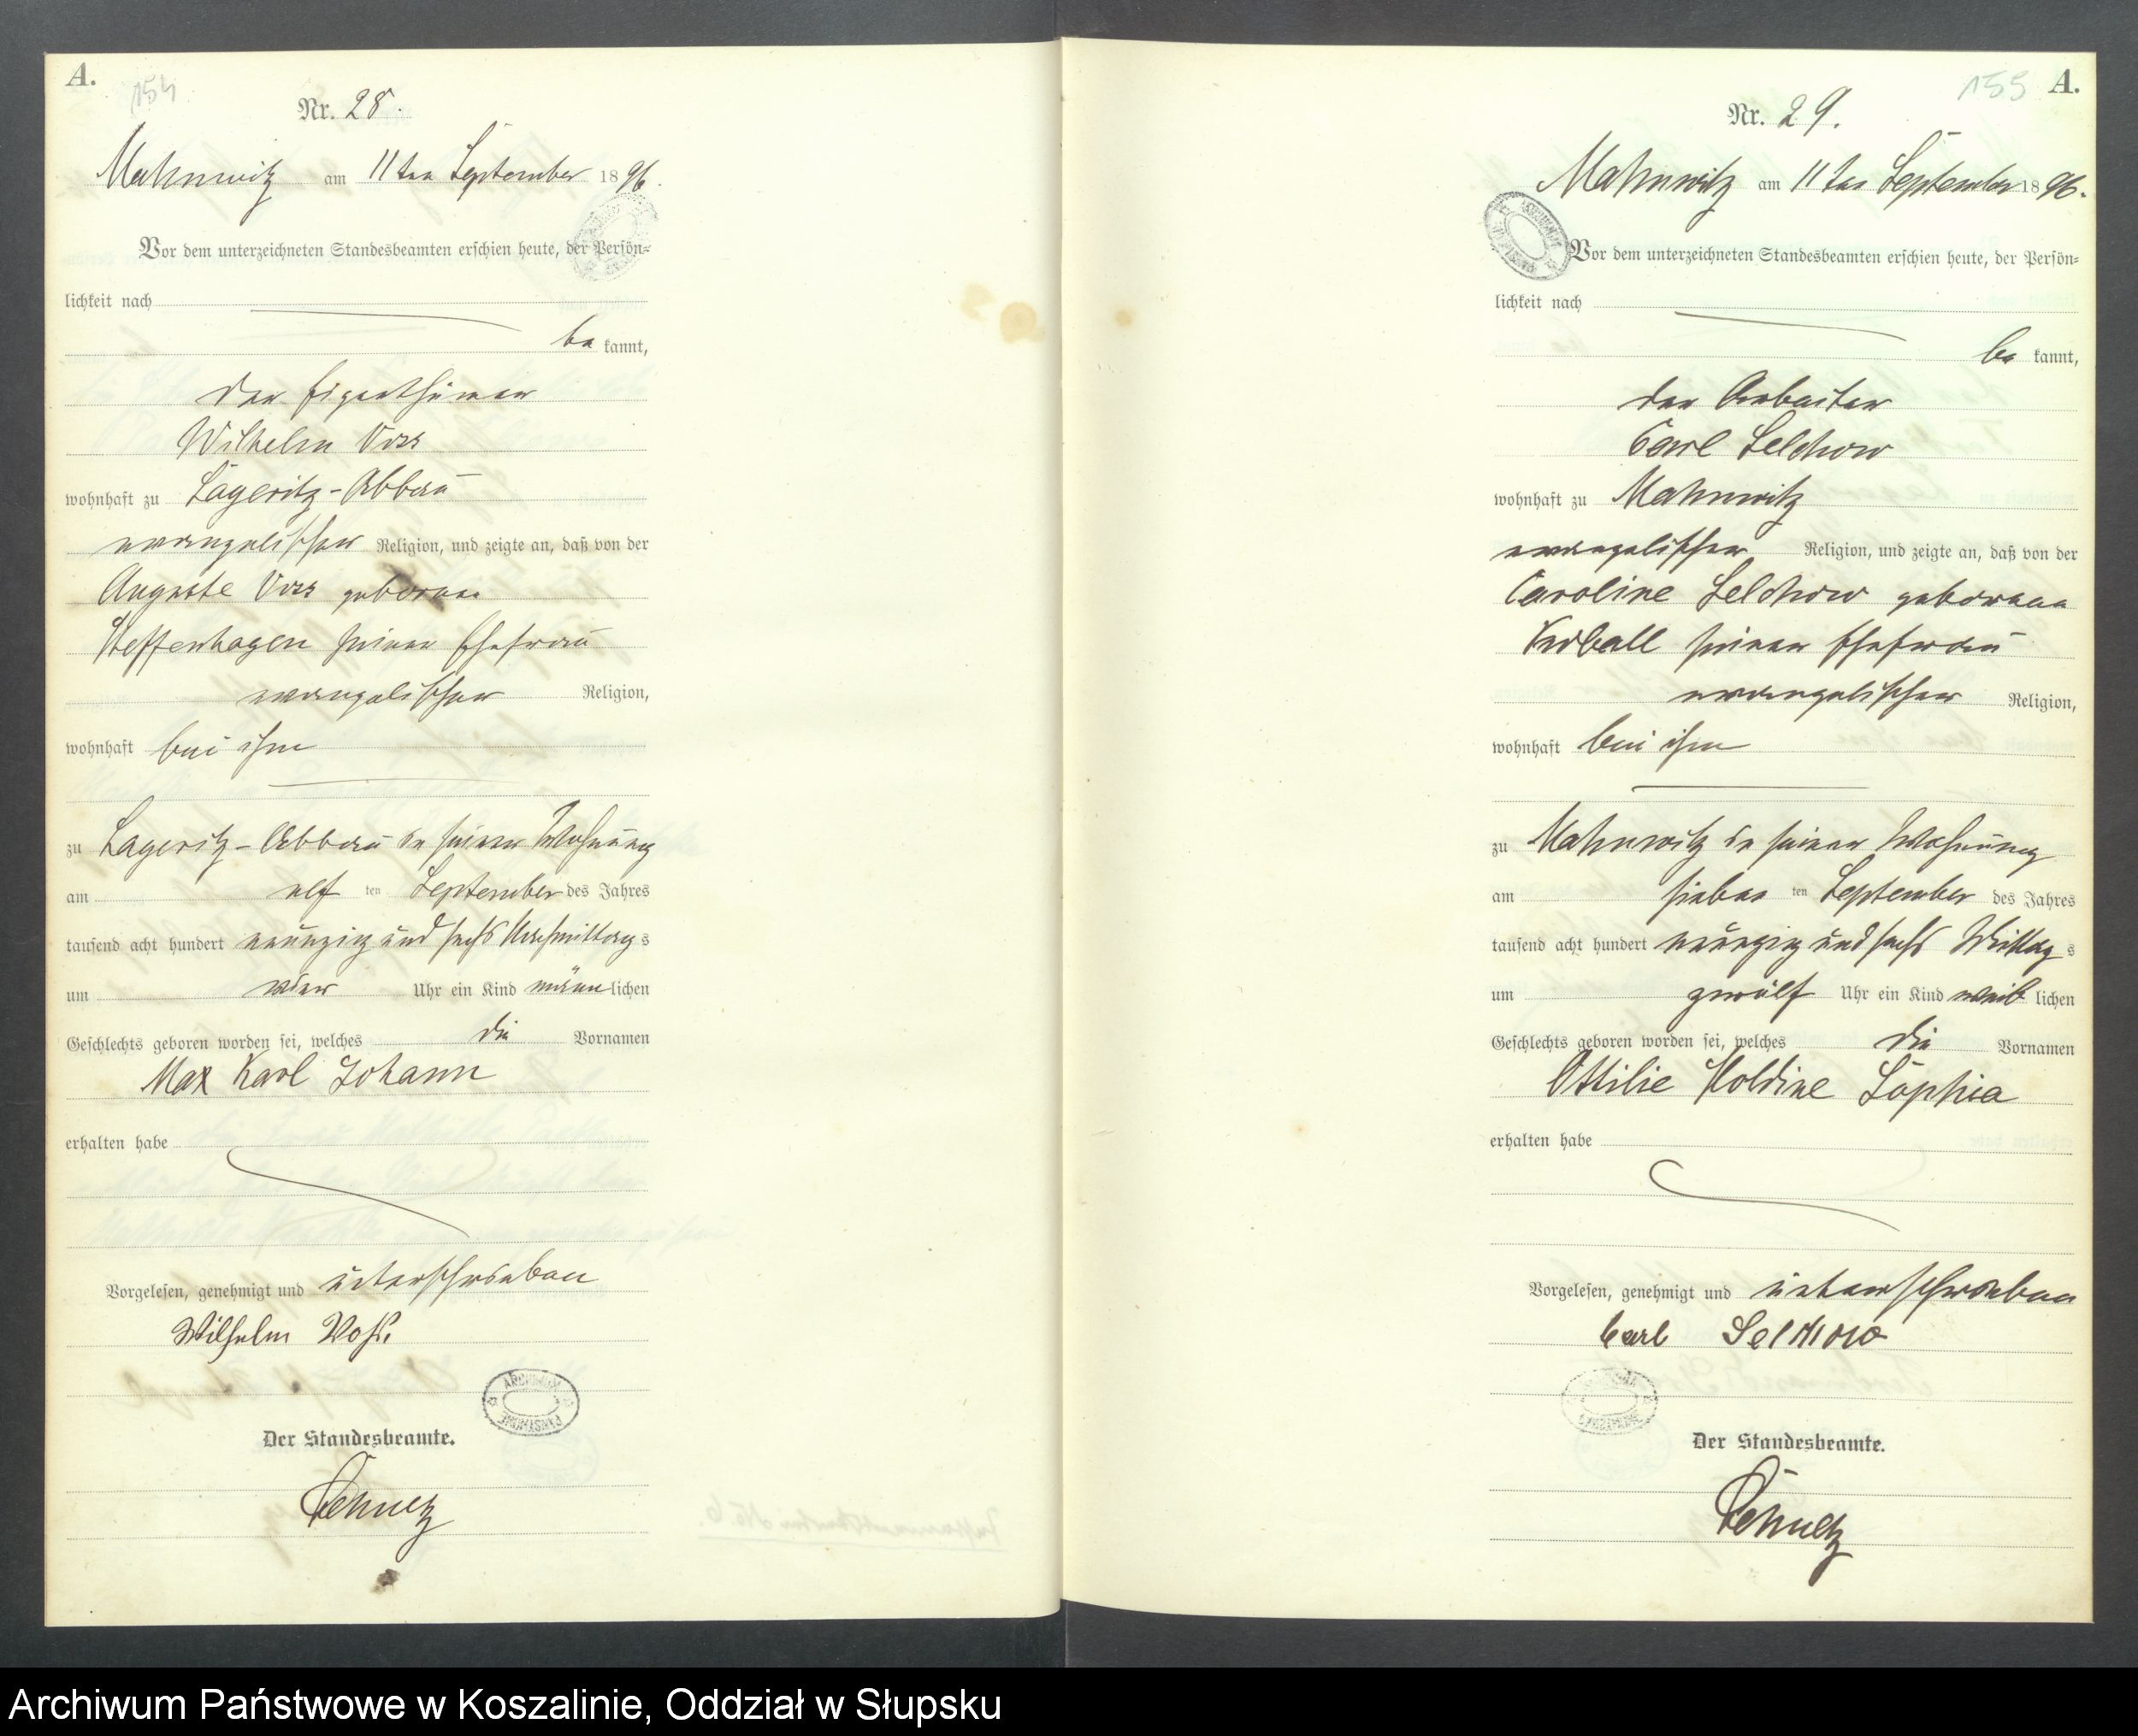 A.
154
Nr. 28.
Mahnwitz am 11ten September 1896.
Vor dem unterzeichneten Standesbeamten erschien heute, der Persön=
lichkeit nach
be kannt,
der Eigenthümer
Wilhelm Voss
wohnhaft zu Lageritz-Abbau
evangelischer Religion, und zeigte an, daß von der
Auguste Voss geborene
Steffenhagen seiner Ehefrau
evangelischer Religion,
wohnhaft bei ihm
zu Lageritz-Abbau in seiner Wohnung
am elf ten September des Jahres
tausend acht hundert neunzig und sechs Nachmittags
um vier Uhr ein Kind männlichen
Geschlechts geboren worden sei, welches die Vornamen
Max Karl Johann
erhalten habe
Vorgelesen, genehmigt und unterschrieben
Wilhelm Voß.
ARCHIWUM PAŃSTWOWE
Der Standesbeamte.
Schultz
155
A.
Nr. 29.
Mahnwitz am 11ten September 1896.
Vor dem unterzeichneten Standesbeamten erschien heute, der Persön=
lichkeit nach
be kannt,
der Arbeiter
Carl Selchow
wohnhaft zu Mahnwitz
evangelischer Religion, und zeigte an, daß von der
Caroline Selchow geborene
seiner Ehefrau
evangelischer Religion,
wohnhaft bei ihm
zu Mahnwitz in seiner Wohnung
am sieben ten September des Jahres
tausend acht hundert neunzig und sechs Mittags
um zwölf Uhr ein Kind weiblichen
Geschlechts geboren worden sei, welches die Vornamen
Ottilie Holdine Sophia
erhalten habe
Vorgelesen, genehmigt und unterschrieben
Carl Selchow
Der Standesbeamte.
Schultz
Archiwum Państwowe w Koszalinie, Oddział w Słupsku